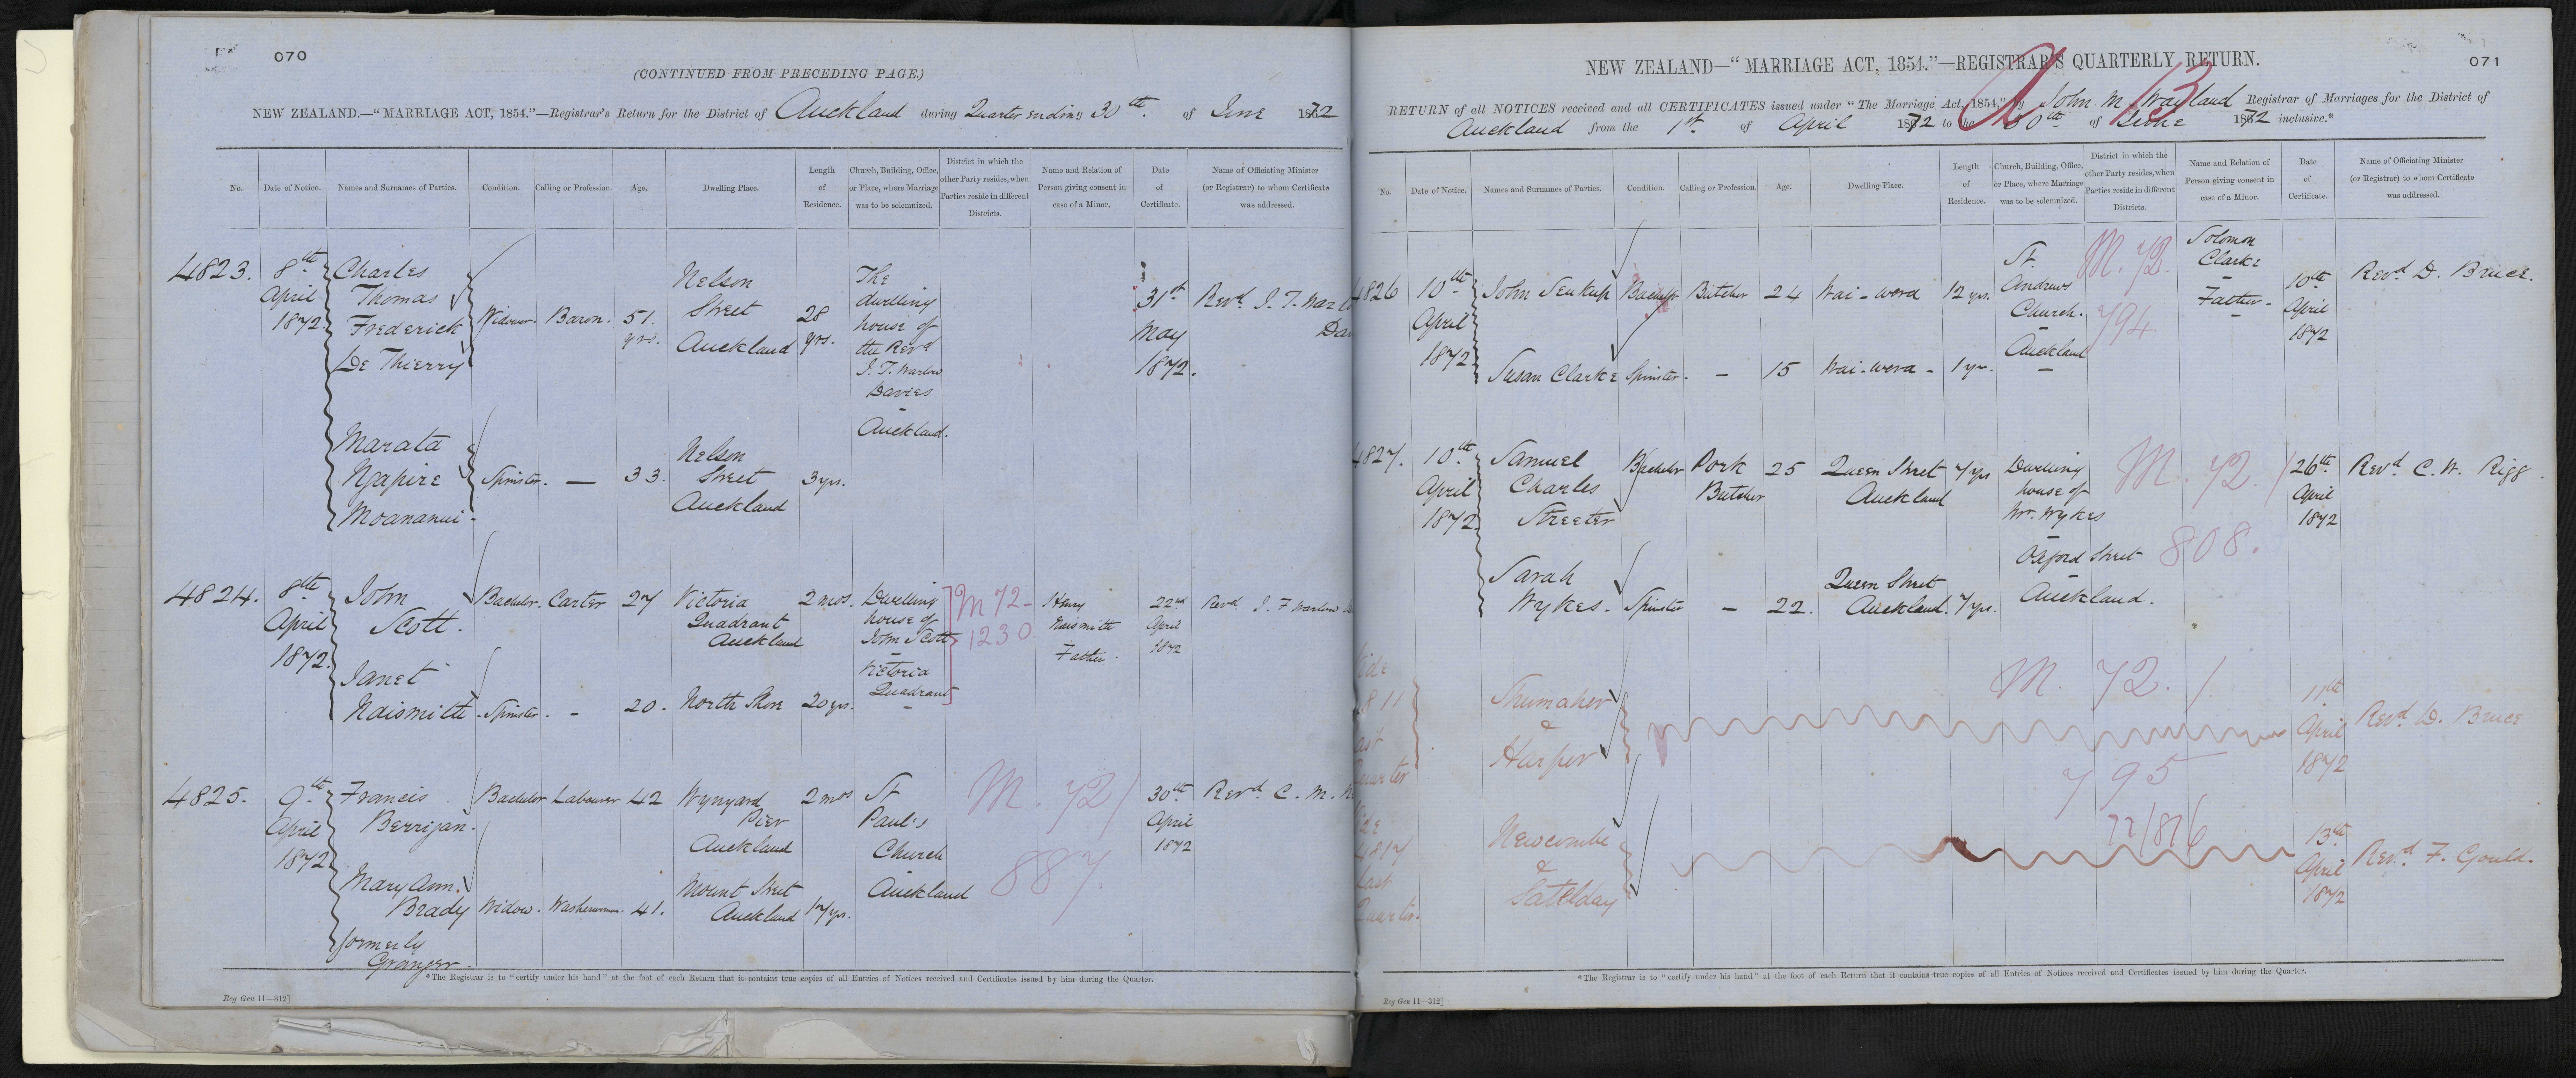 070
(CONTINUED FROM PRECEDING PAGE.)
NEW ZEALAND.—"MARRIAGE ACT, 1854."—Registrar's Return for the District of Auckland during Quarter ending 30th of June 1872
No.
Date of Notice.
Names and Surnames of Parties.
Condition.
Calling or Profession.
Age.
Dwelling Place.
Length of Residence.
Church, Building, Office, or Place, where Marriage was to be solemnized.
District in which the other Party resides, when Parties reside in different Districts.
Name and Relation of Person giving consent in case of a Minor.
Date of Certificate.
Name of Officiating Minister (or Registrar) to whom Certificate was addressed.
4823.
8th April 1872
Charles Thomas Frederick De Thierry
Widower.
Baron.
51. yrs.
Nelson Street Auckland
28 yrs.
The dwelling house of the Revd J. T. Warlow Davies - Auckland.
31st May 1872.
Revd J. T. Warlo
Dav
Marata Ngapire Moananui -
Spinster.
—
33.
Nelson Street Auckland
3 yrs.
4824.
8th April 1872.
John Scott.
Bachelor.
Carter
27
Victoria Quadrant Auckland
2 mos.
Dwelling house of John Scott - Victoria Quadrant -
M 72 - 1230
Henry Naismith Father.
22nd April 1872
Revd J. T. Warlow D
Janet Naismith
Spinster.
-
20.
North Shore
20 yrs.
4825.
9th April 1872
Francis Berrigan.
Bachelor
Labourer
42
Wynyard Pier Auckland
2 mos
St Paul's Church Auckland
M. 72/ 887.
30th April 1872
Revd C. M. N
Mary Ann. Brady formerly Grainger.
Widow.
Washerwoman.
41.
Mount Street Auckland
17 yrs.
*The Registrar is to "certify under his hand" at the foot of each Return that it contains true copies of all Entries of Notices received and Certificates issued by him during the Quarter.
Reg Gen 11—312]
071
NEW ZEALAND—"MARRIAGE ACT, 1854."—REGISTRAR'S QUARTERLY RETURN.
RETURN of all NOTICES received and all CERTIFICATES issued under "The Marriage Act, 1854," by John M. Wayland Registrar of Marriages for the District of
Auckland from the 1st of April 1872 to the 30th of June 1872 inclusive.*
13
No.
Date of Notice.
Names and Surnames of Parties.
Condition.
Calling or Profession.
Age.
Dwelling Place.
Length of Residence.
Church, Building, Office, or Place, where Marriage was to be solemnized.
District in which the other Party resides, when Parties reside in different Districts.
Name and Relation of Person giving consent in case of a Minor.
Date of Certificate.
Name of Officiating Minister (or Registrar) to whom Certificate was addressed.
4826
10th April 1872
John
Bachelor
Butcher
24
Wai-wera
12 yrs.
St. Andrews Church. - Auckland -
M. 72. 794
Solomon Clarke - Father - -
10th April 1872
Revd D. Bruce.
Susan Clarke
Spinster.
—
15
Wai-wera -
1 yr.
4827.
10th April 1872
Samuel Charles Streeter
Bachelor
Pork Butcher
25
Queen Street Auckland
7 yrs
Dwelling house of Mr. Wykes - Oxford Street - Auckland.
M. 72./ 808.
26th April 1872
Revd C. W. Rigg.
Sarah Wykes.
Spinster
—
22.
Queen Street Auckland.
7 yrs.
ide
811
ast
Quarter
Shumaker & Harper
M. 72. / 795
11th April 1872
Revd D. Bruce
4817
Last
Quarter.
Newcombe &
72/876
13th April 1872
Revd F. Gould.
*The Registrar is to "certify under his hand" at the foot of each Return that it contains true copies of all Entries of Notices received and Certificates issued by him during the Quarter.
Reg Gen 11—312]